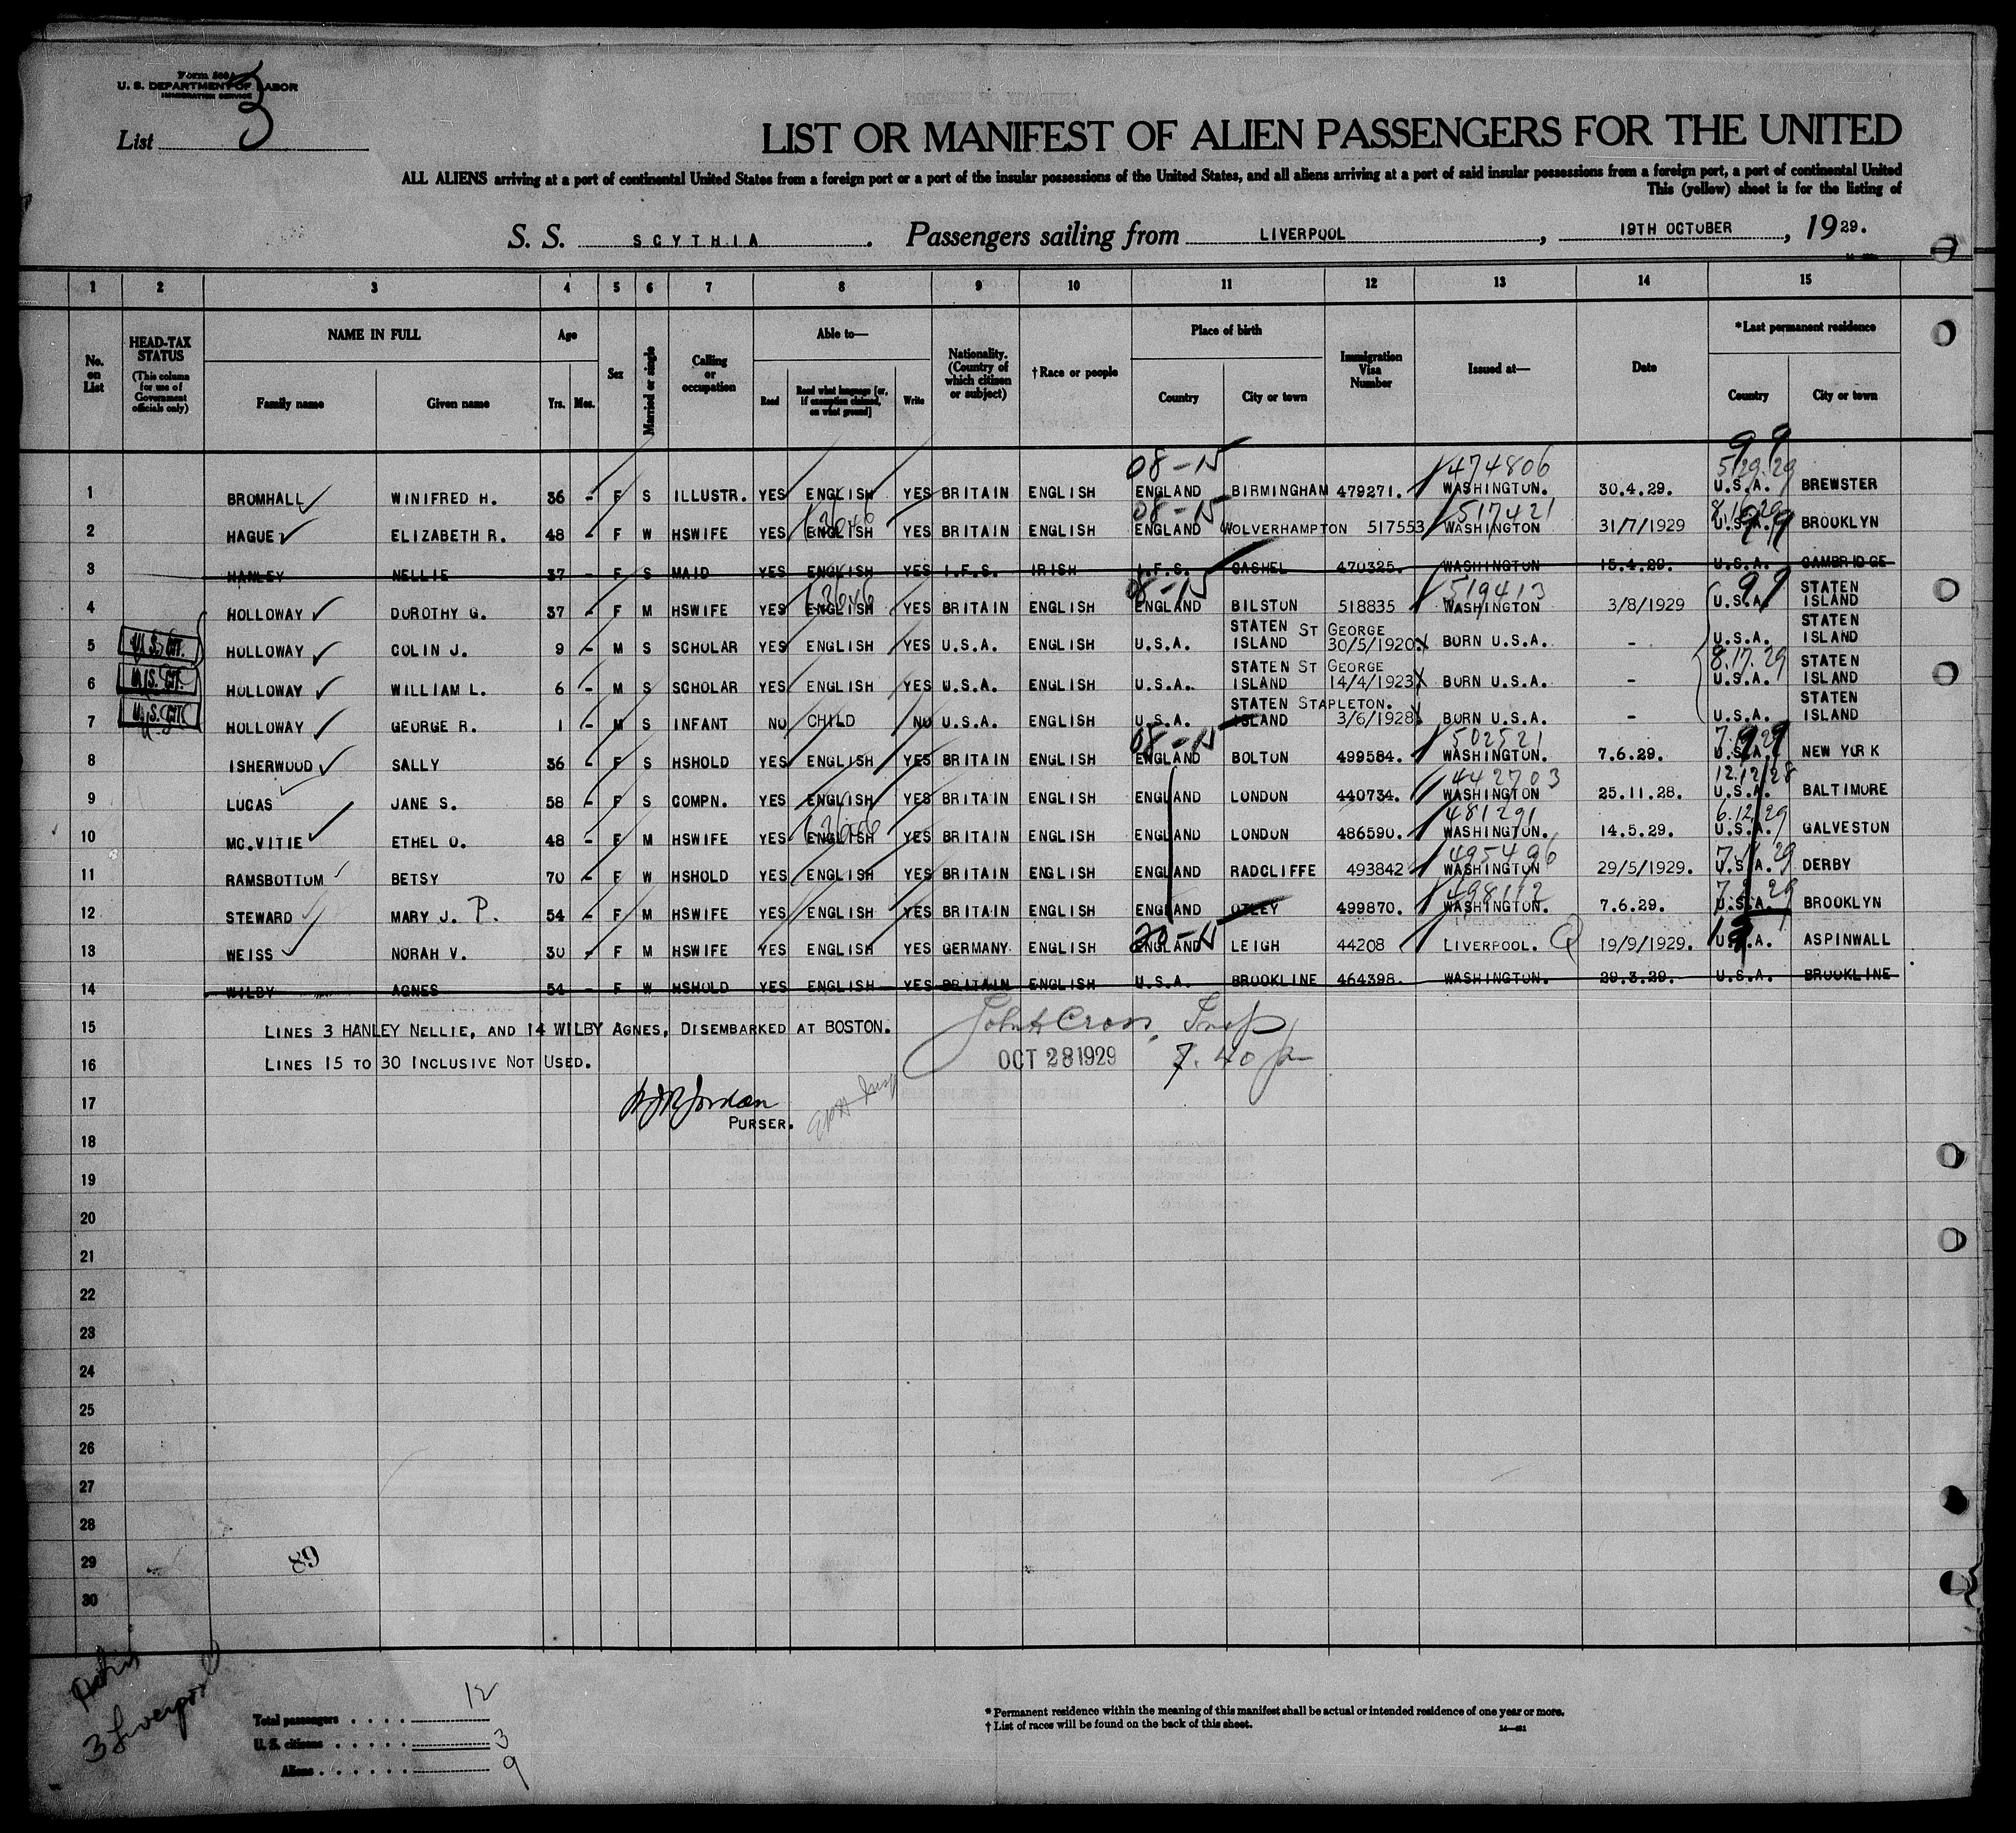 Form 500A
U. S. DEPARTMENT OF LABOR
IMMIGRATION SERVICE
List 3
LIST OR MANIFEST OF ALIEN PASSENGERS FOR THE UNITED
ALL ALIENS arriving at a port of continental United States from a foreign port or a port of the insular possessions of the United States, and all aliens arriving at a port of said insular possessions from a foreign port, a port of continental United
This (yellow) sheet is for the listing of
S. S. SCYTHIA. Passengers sailing from LIVERPOOL, 19TH OCTOBER, 1929.
1 2 3 4 5 6 7 8 9 10 11 12 13 14 15
No. on List
HEAD-TAX STATUS
(This column for use of Government officials only)
NAME IN FULL
Family name Given name
Age
Yrs. Mos.
Sex
Married or single
Calling or occupation
Able to—
Read
Read what language [or, if exemption claimed, on what ground]
Write
Nationality. (Country of which citizen or subject)
†Race or people
Place of birth
Country City or town
Immigration Visa Number
Issued at—
Date
*Last permanent residence
Country City or town
99
08-15 474806 5/29/29
1 BROMHALL WINIFRED H. 36 - F S ILLUSTR. YES ENGLISH YES BRITAIN ENGLISH ENGLAND BIRMINGHAM 479271. WASHINGTON. 30.4.29. U.S.A. BREWSTER
08-15 517421
2 HAGUE ELIZABETH R. 48 - F W HSWIFE YES ENGLISH YES BRITAIN ENGLISH ENGLAND WOLVERHAMPTON 517553 WASHINGTON 31/7/1929 U.S.A. BROOKLYN
3 HANLEY NELLIE 37 - F S MAID YES ENGLISH YES I.F.S. IRISH I.F.S. CASHEL 470325. WASHINGTON 15.4.29. U.S.A. CAMBRIDGE
08-15 519413 99
4 HOLLOWAY DOROTHY G. 37 - F M HSWIFE YES ENGLISH YES BRITAIN ENGLISH ENGLAND BILSTON 518835 WASHINGTON 3/8/1929 U.S.A. STATEN ISLAND
U.S. CIT.
5 HOLLOWAY COLIN J. 9 - M S SCHOLAR YES ENGLISH YES U.S.A. ENGLISH U.S.A. STATEN ISLAND ST GEORGE 30/5/1920. BORN U.S.A. - U.S.A. STATEN ISLAND
8.17.29
U.S. CIT.
6 HOLLOWAY WILLIAM L. 6 - M S SCHOLAR YES ENGLISH YES U.S.A. ENGLISH U.S.A. STATEN ISLAND ST GEORGE 14/4/1923 BORN U.S.A. - U.S.A. STATEN ISLAND
U.S. CIT
7 HOLLOWAY GEORGE R. 1 - M S INFANT NO CHILD NO U.S.A. ENGLISH U.S.A. STATEN ISLAND STAPLETON. 3/6/1928 BORN U.S.A. - U.S.A. STATEN ISLAND
08-15 502521
8 ISHERWOOD SALLY 36 - F S HSHOLD YES ENGLISH YES BRITAIN ENGLISH ENGLAND BOLTON 499584. WASHINGTON. 7.6.29. U.S.A. NEW YORK
442703 12.12/28
9 LUCAS JANE S. 58 - F S COMPN. YES ENGLISH YES BRITAIN ENGLISH ENGLAND LONDON 440734. WASHINGTON 25.11.28. U.S.A. BALTIMORE
481291 6.12/29
10 MC.VITIE ETHEL O. 48 - F M HSWIFE YES ENGLISH YES BRITAIN ENGLISH ENGLAND LONDON 486590. WASHINGTON. 14.5.29. U.S.A. GALVESTON
495496
11 RAMSBOTTOM BETSY 70 - F W HSHOLD YES ENGLISH YES BRITAIN ENGLISH ENGLAND RADCLIFFE 493842 WASHINGTON 29/5/1929. U.S.A. DERBY
498112
12 STEWARD MARY J. P. 54 - F M HSWIFE YES ENGLISH YES BRITAIN ENGLISH ENGLAND OTLEY 499870. WASHINGTON. 7.6.29. U.S.A. BROOKLYN
20-15
13 WEISS NORAH V. 30 - F M HSWIFE YES ENGLISH YES GERMANY ENGLISH ENGLAND LEIGH 44208 LIVERPOOL. Q 19/9/1929. U.S.A. ASPINWALL
14 WILBY AGNES 54 - F W HSHOLD YES ENGLISH YES BRITAIN ENGLISH U.S.A. BROOKLINE 464398. WASHINGTON. 29.3.29. U.S.A. BROOKLINE
15 LINES 3 HANLEY NELLIE, AND 14 WILBY AGNES, DISEMBARKED AT BOSTON. John Cross, Insp
16 LINES 15 TO 30 INCLUSIVE NOT USED. OCT 28 1929 7.40 p
17 Jordan
PURSER.
18
19
20
21
22
23
24
25
26
27
28
29 89
30
3 Liverpool
Total passengers . . . . 12
U. S. citizens . . . . . 3
Aliens . . . . . . 9
* Permanent residence within the meaning of this manifest shall be actual or intended residence of one year or more.
† List of races will be found on the back of this sheet.